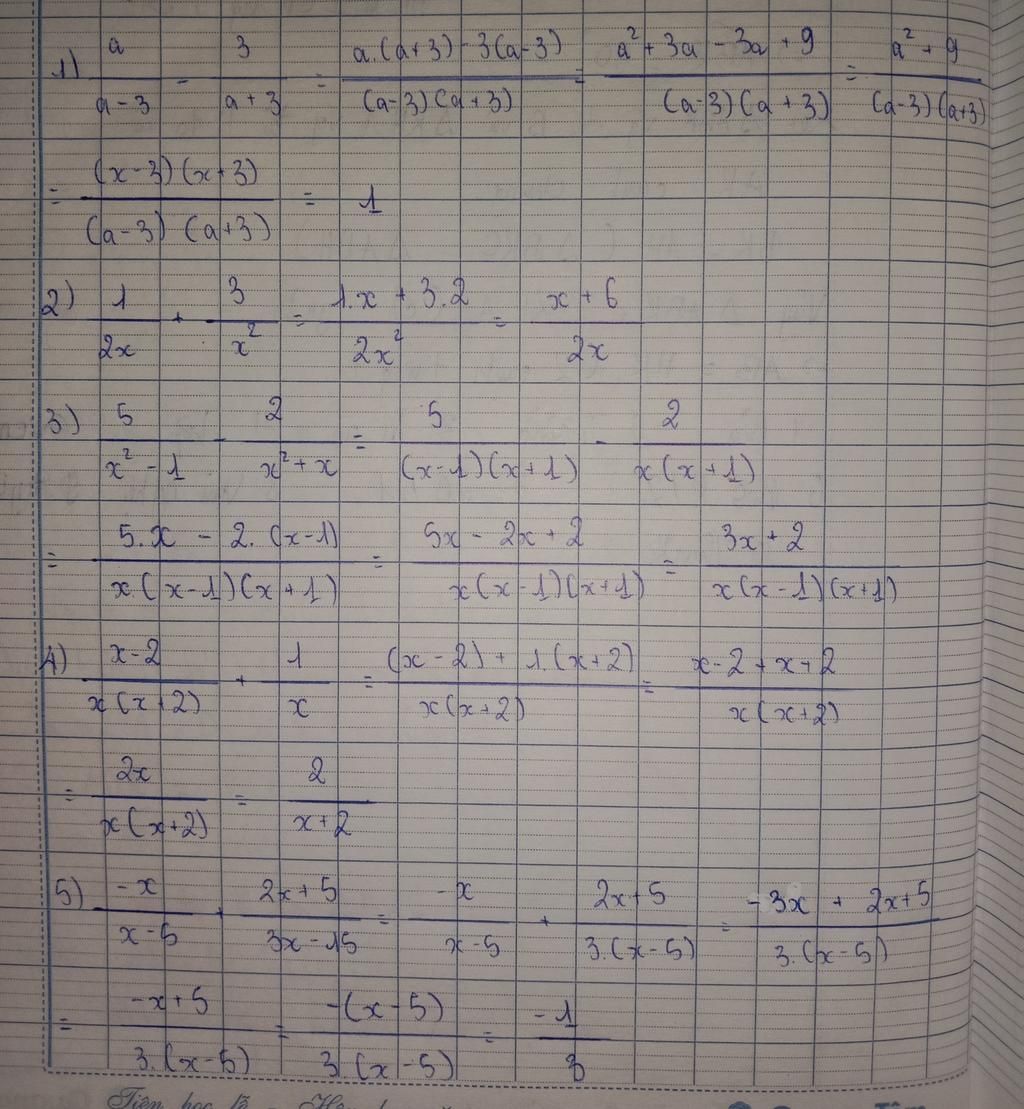 1) a/(a-3) - 3/(a+3) = (a.(a+3) - 3(a-3))/((a-3)(a+3)) = (a² + 3a - 3a + 9)/((a-3)(a+3)) = (a² + 9)/((a-3)(a+3))
= ((x-3)(x+3))/((a-3)(a+3)) = 1
2) 1/2x + 3/x² = (1.x + 3.2)/2x² = (x+6)/2x
3) 5/(x²-1) - 2/(x²+x) = 5/((x-1)(x+1)) - 2/(x(x+1))
= (5.x - 2.(x-1))/(x(x-1)(x+1)) = (5x - 2x + 2)/(x(x-1)(x+1)) = (3x+2)/(x(x-1)(x+1))
4) (x-2)/(x(x+2)) + 1/x = ((x-2) + 1.(x+2))/(x(x+2)) = (x-2+x+2)/(x(x+2))
= 2x/(x(x+2)) = 2/(x+2)
5) -x/(x-5) + (2x+5)/(3x-15) = -x/(x-5) + (2x+5)/(3.(x-5)) = (-3x + 2x+5)/(3.(x-5))
= (-x+5)/(3.(x-5)) = -(x-5)/(3(x-5)) = -1/3
Tiên học lễ